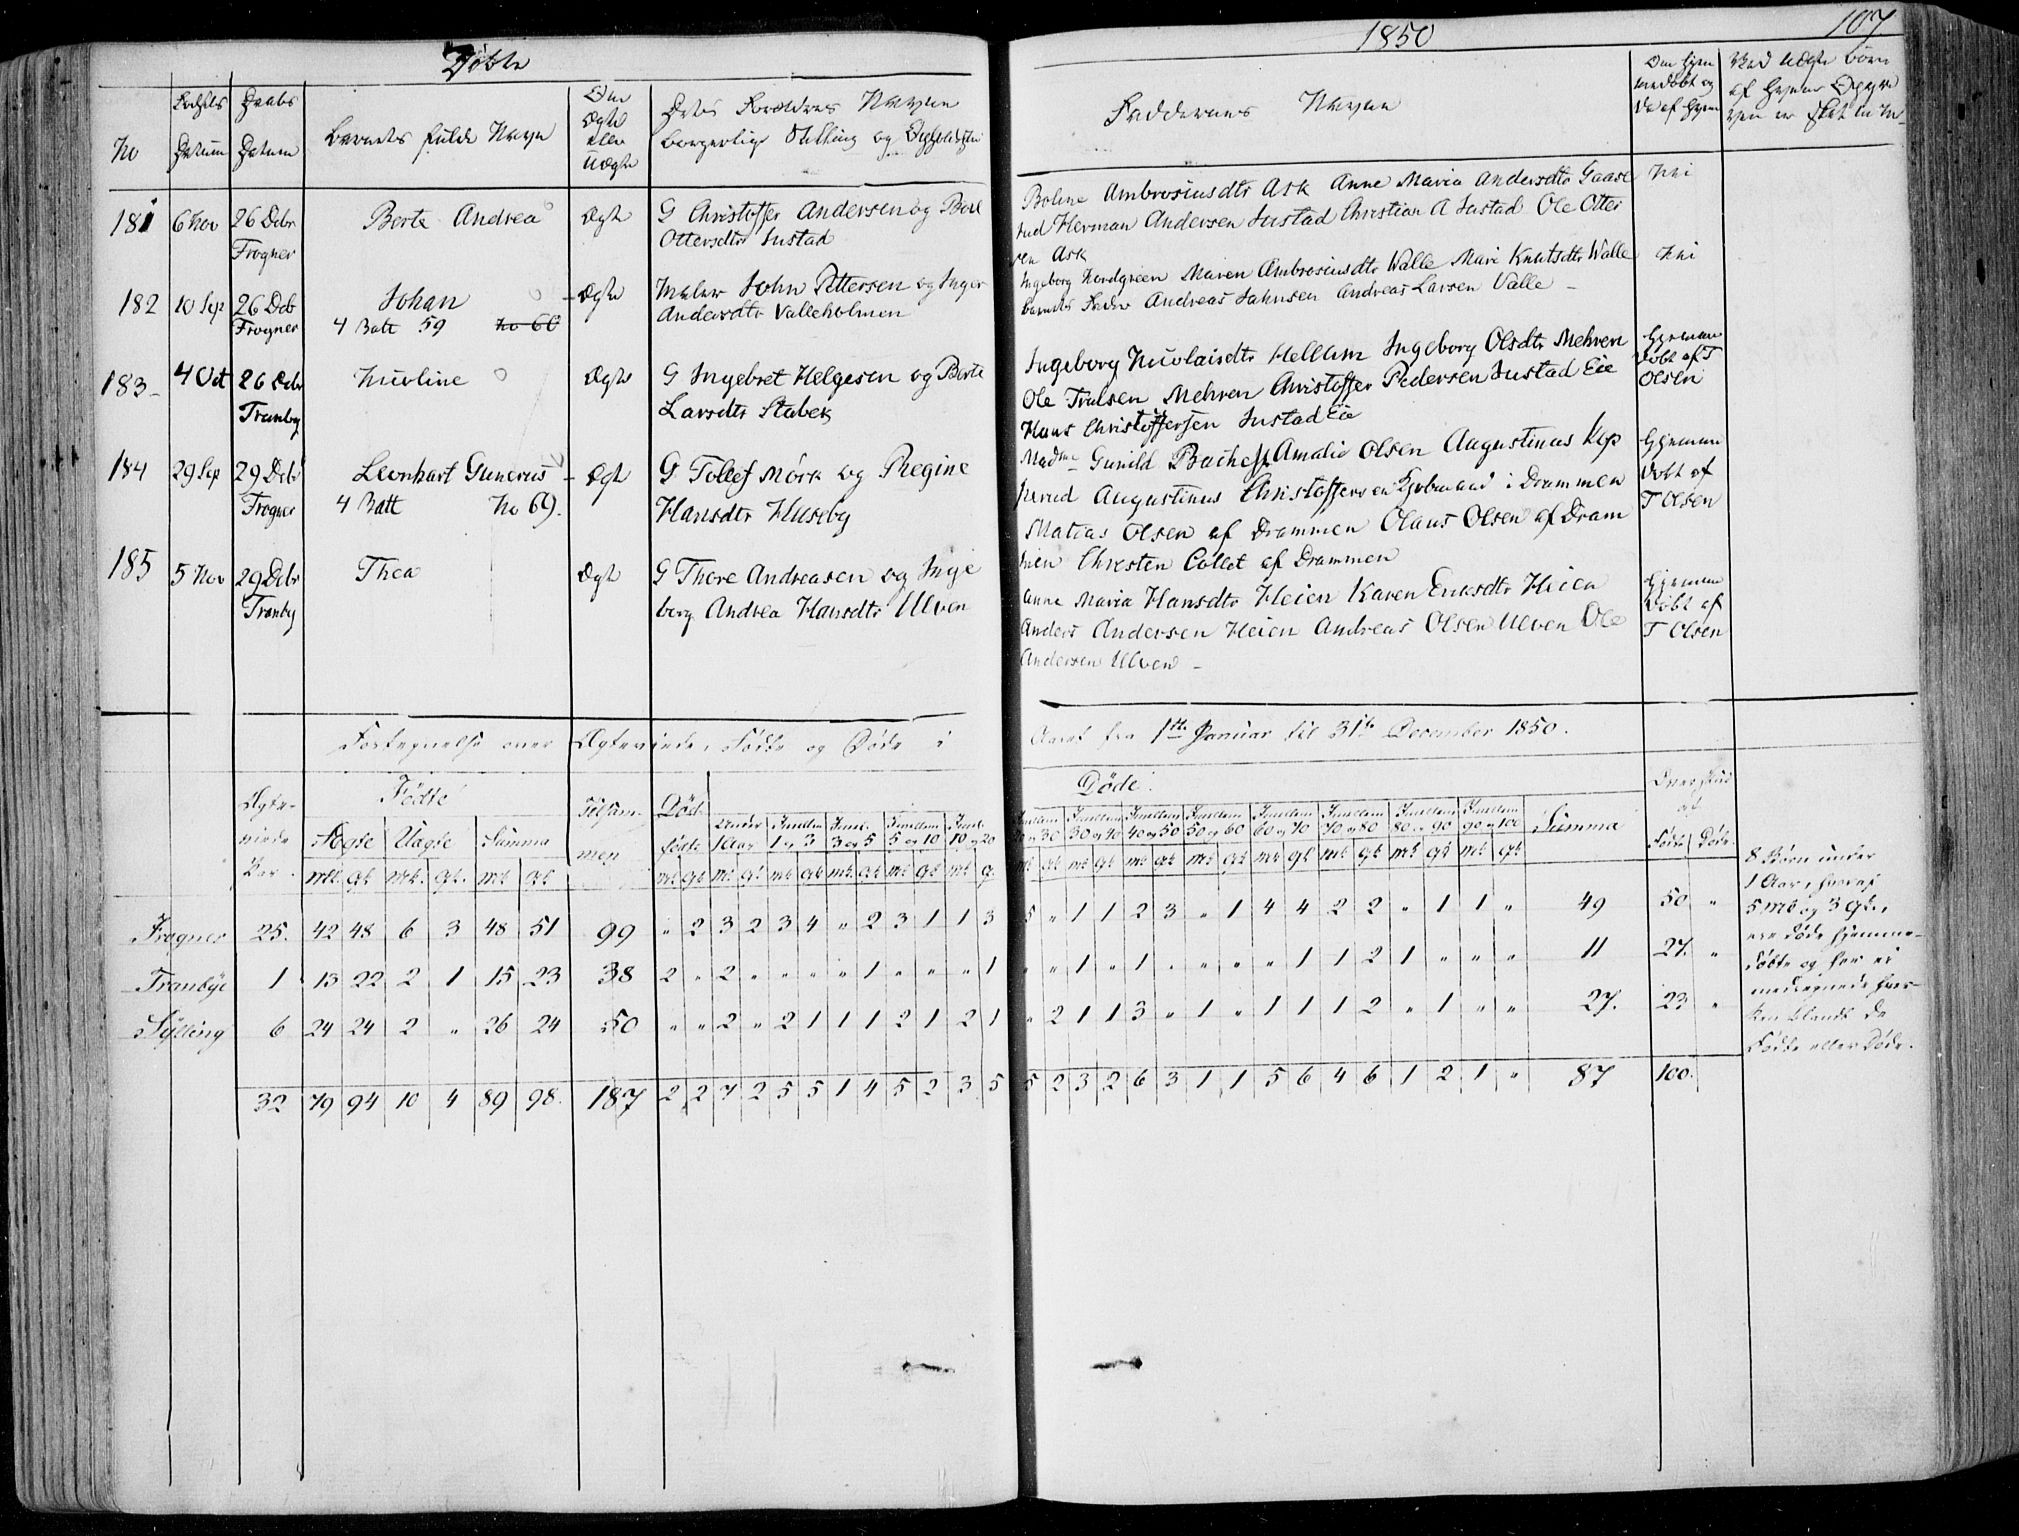 Døbte
1850
107
No
Fødsels Datum
Daabs Datum
Barnets fulde Navn
Om Ægte eller Uægte
Dets Forældres Navne borgerlige Stilling og Opholdssted
Faddernes Navne
Om hjemmedøbt og da af hvem
181
6 Nov
26 Debr Frogner
Berte Andrea
Ægte
G Christoffer Andersen og Boel
Ottersdtr Justad
Boline Ambrosiusdtr Ask Anne Maria Andersdtr Gaare
rud Herman Andersen Justad Christian A Justad Ole Otter
sen Ask
Nei
182
10 Sep
26 Debr Frogner
Johan
4 Batt 59 No 60
Ægte
Maler John Pettersen og Inger
Andersdtr Valleholmen
Ingeborg Nordgreen Maren Ambrosiusdtr Walle Mari Knutsdtr Walle
barnets Fader Andreas Jahnsen Andreas Larsen Valle
Nei
183
4 Oct
26 Debr Tranby
Nicoline
Ægte
G Ingebret Helgesen og Berte
Larsdtr Stabek
Ingeborg Nicolaisdtr Hellum Ingeborg Olsdtr Mehren
Ole Trulsen Mehren Christoffer Pedersen Justad Eie
Hans Christoffersen Justad Eie
Hjemme døbt af T Olsen
184
29 Sep
29 Debr Frogner
Leonhart Gunerius
4 Batt No 69.
Ægte
G Tollef Mørk og Regine
Hansdtr Huseby
Madme Gunild Bache Amalie Olsen Augustinus Kop
perud Augustinus Christoffersen Kjøbmand i Drammen
Matias Olsen af Drammen Olaus Olsen af Dram
men Christen Collet af Drammen
Hjemme døbt af T Olsen
185
5 Nov
29 Debr Tranby
Thea
Ægte
G Thore Andreasen og Inge
borg Andrea Hansdtr Ulven
Anne Maria Hansdtr Heien Karen Eriksdtr Heien
Anders Andersen Heien Andreas Olsen Ulven Ole
Andersen Ulven
Hjemme døbt af T Olsen
Fortegnelse over Ægteviede, Fødte og Døde i
Aaret fra 1ste Januar til 31te December 1850.
Ægteviede Par
Fødte
Ægte Uægte Summa
Tilsammen
Dødfødte
Døde
Under 1 Aar
Imellem 1 og 3
Imel. 3 og 5
Imellem 5 og 10
Imel. 10 og 20
Imellem 20 og 30
Imellem 30 og 40
Imellem 40 og 50
Imellem 50 og 60
Imellem 60 og 70
Imellem 70 og 80
Imellem 80 og 90
Imellem 90 og 100
Summa
Overskud af
Fødte Døde
Frogner 25. 42 48 6 3 48 51 99 " 2 3 2 3 4 " 2 3 1 1 3 5 " 1 1 2 3 " 1 4 4 2 2 " 1 1 " 49 50 "
Tranbye 1 13 22 2 1 15 23 38 2 " 2 " " " " 1 " " " 1 " " 1 " 1 " " " " 1 1 2 1 " " " 11 27. "
Sylling 6 24 24 2 " 26 24 50 " " 2 " 2 1 1 1 2 1 2 1 " 2 1 1 3 " 1 " 1 1 1 2 " 1 " " 27. 23 "
32 79 94 10 4 89 98. 187 2 2 7 2 5 5 1 4 5 2 3 5 5 2 3 2 6 3 1 1 5 6 4 6 1 2 1 " 87 100.
8 Børn under
1 Aar, hvoraf
5 Mk og 3 Qk.,
ere døde hjemme-
døbte og her ei
medregnede hver-
ken blandt de
Fødte eller Døde.